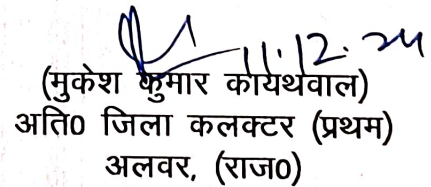 11.12.24
(मुकेश कुमार कायथवाल)
अति0 जिला कलक्टर (प्रथम)
अलवर, (राज0)